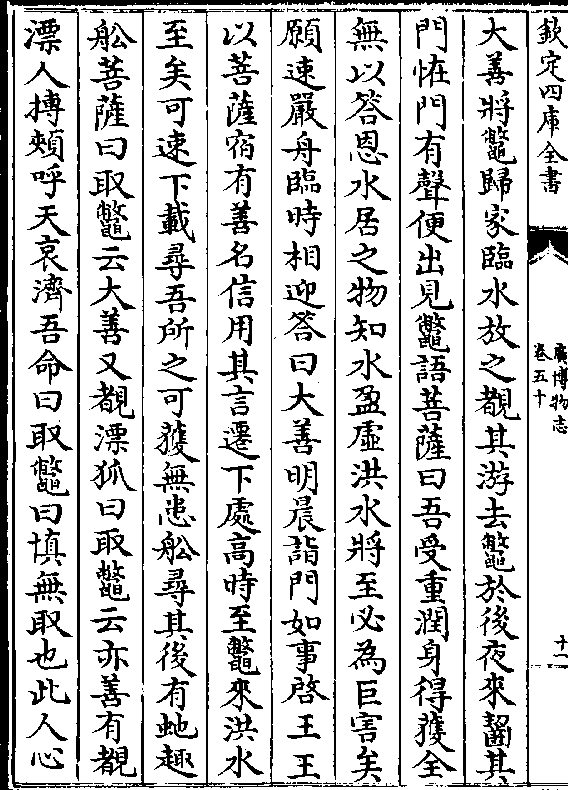 欽定四庫全書
廣博物志
卷五十
十一
大善將鼈歸家臨水放之覩其游去鼈於後夜來齧其
門怪門有聲便出見鼈語菩薩曰吾受重潤身得獲全
無以答恩水居之物知水盈虛洪水將至必為巨害矣
願速嚴舟臨時相迎答曰大善明晨詣門如事啓王王
以菩薩宿有善名信用其言遷下處高時至鼈來洪水
至矣可速下載尋吾所之可獲無患舩尋其後有虵趣
舩菩薩曰取鼈云大善又覩漂狐曰取鼈云亦善有覩
漂人搏頰呼天哀濟吾命曰取鼈曰慎無取也此人心